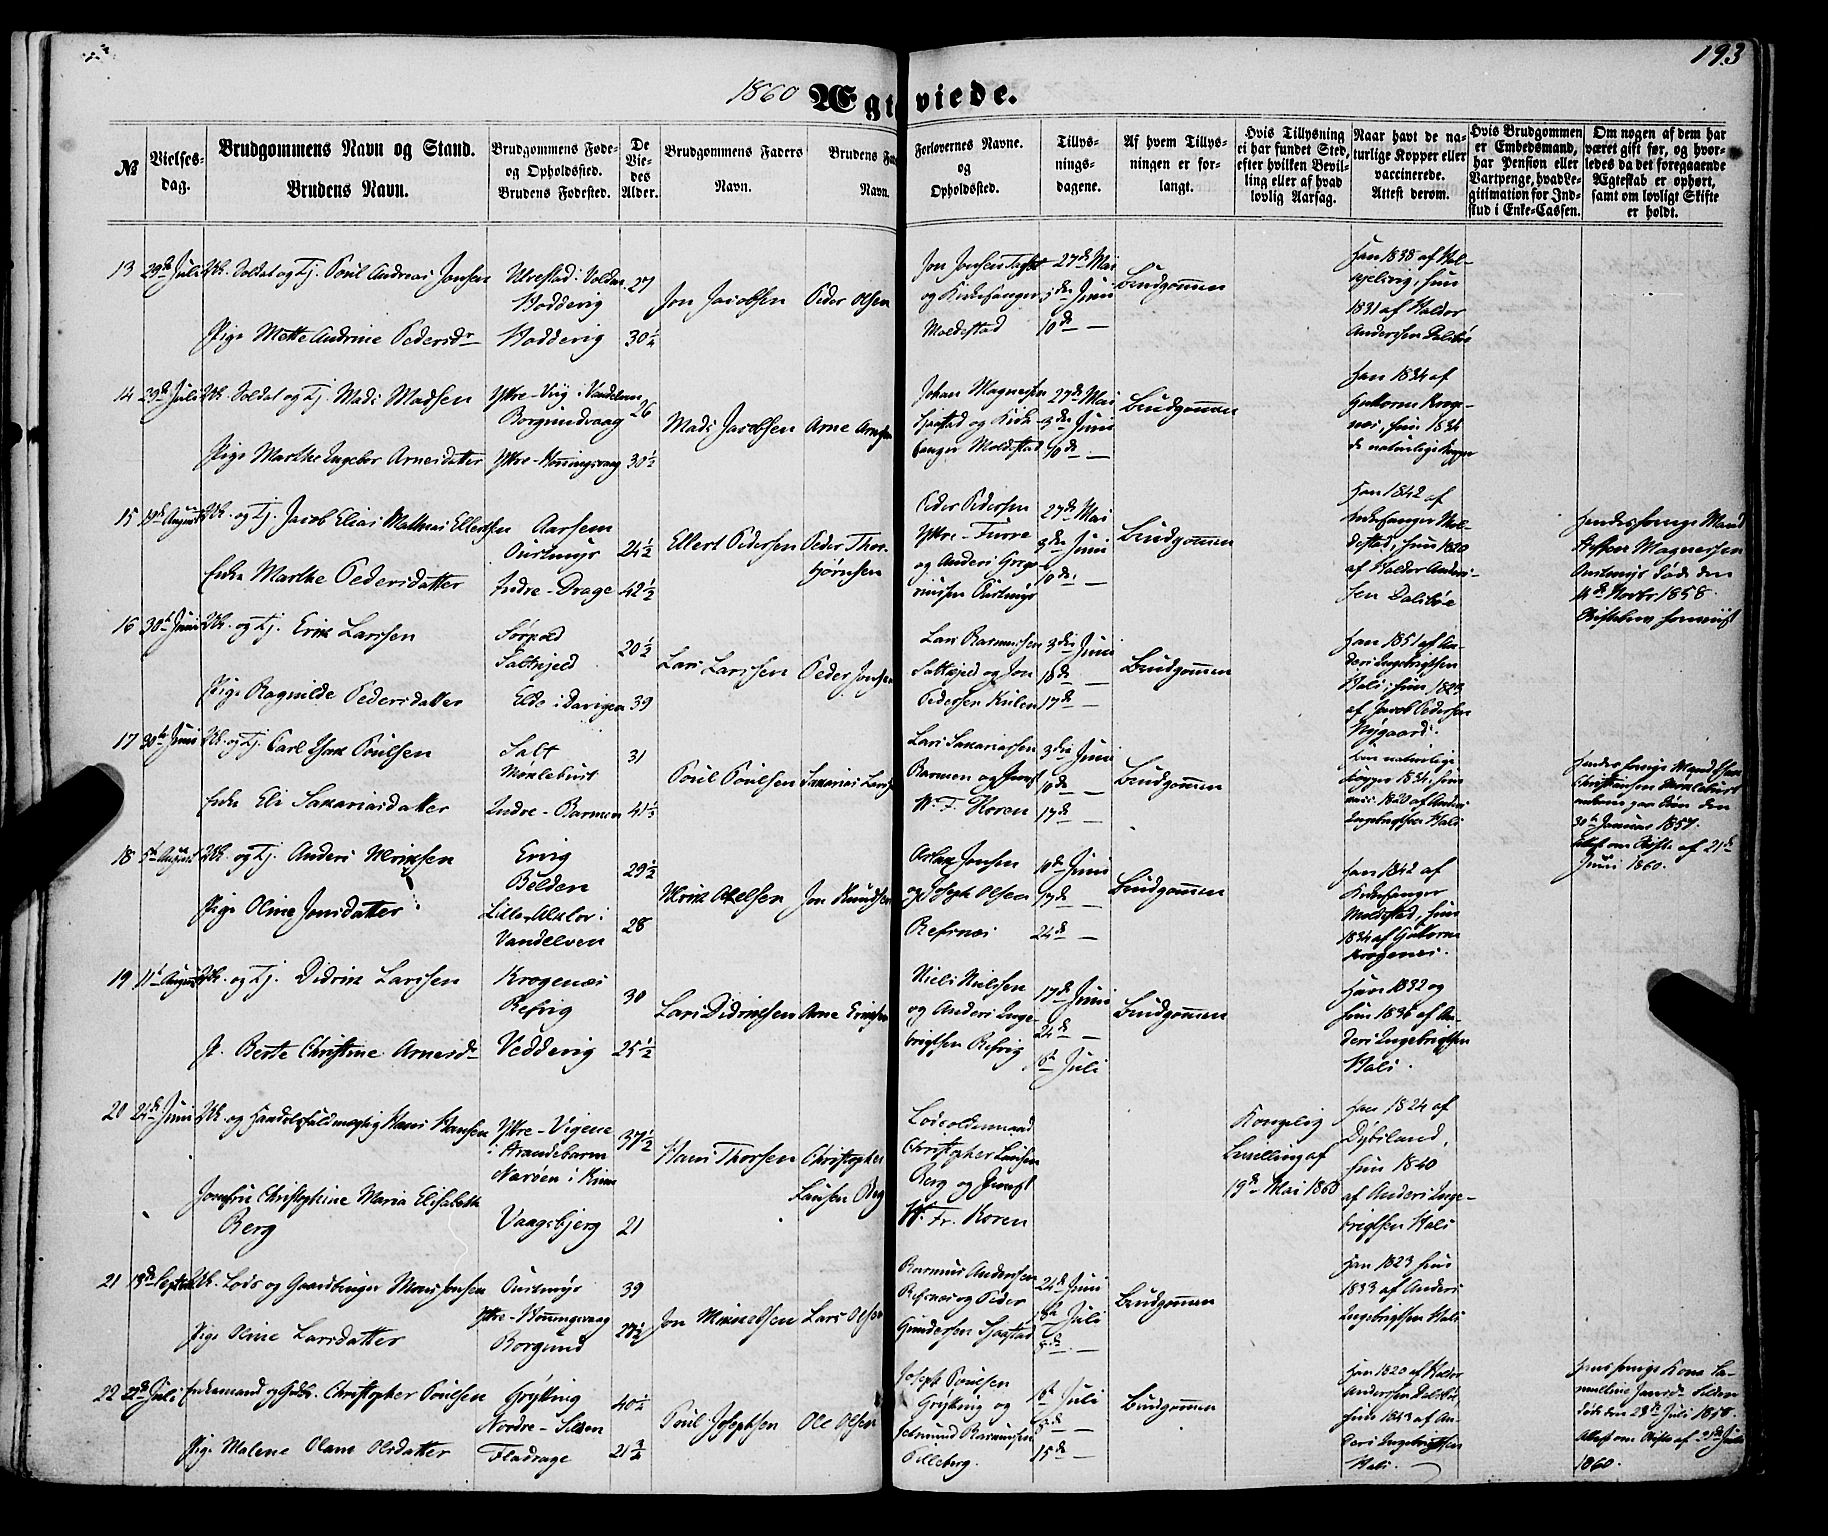 193
1860 Ægteviede.
№
Vielses-
dag.
Brudgommens Navn og Stand.
Brudens Navn.
Brudgommens Føde-
og Opholdssted.
Brudens Fødested.
De
Vie-
des
Alder.
Brudgommens Faders
Navn.
Brudens Fa
Navn.
Forlovernes Navne.
og
Opholdssted.
Tillys-
nings-
dagene.
Af hvem Tillys-
ningen er for-
langt.
Hvis Tillysning
ei har fundet Sted,
efter hvilken Bevil-
ling eller af hvad
lovlig Aarsag.
Naar havt de na-
turlige Kopper eller
vaccinerede.
Attest derom.
Hvis Brudgommen
er Embedsmand,
har Pension eller
Vartpenge, hvad Le-
gitimation for Ind-
skud i Enke-Cassen.
Om nogen af dem har
været gift før, og hvor-
ledes da det foregaaende
Ægteskab er ophørt,
samt om lovligt Skifte
er holdt.
13 29de Juli Uk. Soldat og Tj. Poul Andreas Jonsen
Pige Mette Andrine Pedersdr
Hoddevig
Hoddevig
27
30½
Jon Jacobsen
Peder Olsen
Jon Jonsen
og Kirkesanger
Moldestad
27de Mai
3die Juni
10de —
Brudgommen
Han 1838 af
hun
1831 af Haldor
Anderssen Dalsbøe
14 29de Juli Uk. Soldat og Tj. Mads Madsen
Pige Marthe Ingebor Arnesdatter
Borgundvaag
Ytre-Honningsvaag
26
30½
Mads Jacobsen
Arne Arnesen
Johan Magnesen
og Kirke-
sanger Moldestad
27de Mai
3die Juni
10de —
Brudgommen
Han 1834 af
Guttorm Kroge-
næs, hun 1834
de naturlige Kopper
15 19de August Uk. og Tj. Jacob Elias Mathias Ellertsen
Enke Marthe Pedersdatter
Aarsem
Øurtmyr
Indre-Drage
24½
42½
Ellert Pedersen
Peder Thor-
bjørnsen
Peder Pedersen
Ytre-Furre
og Anders
27de Mai
3die Juni
10de —
Brudgommen
Han 1842 af
Kirkesanger Mol-
destad, hun 1820
af Haldor Anders-
sen Dalsbøe
Hendes forrige Mand
Magnessen
døde den
11te Novbr 1858.
16 30te Juni Uk. og Tj. Erik Larssen
Pige Ragnilde Pedersdatter
Sørpold
Saltkjeld
Elde i Davigen
20½
39
Lars Larssen
Peder Jonsen
Lars Rasmussen
Saltkjeld og Jon
Pedersen
3die Juni
10de —
17de —
Brudgommen
Han 1851 af An-
ders Ingebrigtsen
Hals, hun 1820
af Jacob Pedersen
Nygaard.
17 30te Juni Uk. og Tj. Carl Isak Poulsen
Enke Eli Sakariasdatter
Salt
Monlebust
Indre-Barmen
31
41½
Poul Poulsen
Sakarias Lars
Lars Sakariassen
Barmen og
W. F. Koren
3die Juni
10de —
17de —
Brudgommen
Han naturlige
Kopper 1834, hun
1820 af Anders
Ingebrigtsen Hals
Hendes forrige Mand
omkom paa Søen den
30te Januar 1857.
Attest om Skifte af 21de
Juni 1860.
18 5te August Uk. og Tj. Anders Ulriksen
Pige Oline Jonsdatter
Ervig
Belden
Vandelven
29½
28
Ulrik Axelsen
Jon Knudsen
Aslak Jonsen
og Joseph Olsen
Refsnæs
10de Juni
17de —
24de —
Brudgommen
Han 1842 af
Kirkesanger
Moldestad, hun
1834 af Guttorm
Krogenæs.
19 11te August Uk. og Tj. Didrik Larssen
P. Berte Christine Arnesdr
Krogenæs
Refvig
Veddevig
30
25½
Lars Didriksen
Arne Eriksen
Niels Nielsen
og Anders Inge-
brigtsen Refvig
17de Juni
24de —
1ste Juli
Brudgommen
Han 1832 og
hun 1836 af An-
ders Ingebrigtsen
Hals.
20 24de Juni Uk. og Handelsfuldmægtig Hans Hansen
Jomfru Christophine Maria Elisabeth
Berg
Ytre-Vigene
i Strandebarm
Narøen i Kinn
Vaagsbjerg
37½
21
Hans Thorsen
Christopher
Lausen Berg
Lodsoldermand
Christopher Lausen
Berg og
W. Fr. Koren
Kongelig
Bevilling af
19de Mai 1860
Han 1824 af
Hun 1840
af Anders Inge-
brigtsen Hals
21 Uk. Lods og Gaardbruger Mons Jonsen
Pige Oline Larsdatter
Ytre-Honningsvaag
Borgund
39
Jon Mikkelsen
Lars Olsen
Rasmus Andersen
Refsnæs og Peder
Gundersen
24de Juni
1ste Juli
8de —
Brudgommen
Han 1823 hun
1833 af Anders
Ingebrigtsen Hals
22 22de Juli Enkemand og Gdbr. Christopher Poulsen
Pige Malene Olava Olsdatter
Grytting
Nordre-
Fladrage
40½
Poul Josephsen
Ole Olsen
Joseph Poulsen
Grytting og
Rasmussen
1ste Juli
8de —
15de —
Brudgommen
Han 1820 af Haldor
Anderssen Dalsbøe,
hun 1843 af An-
ders Ingebrigtsen
Hals.
Hans forrige Kone
døde den 28de Juli
Attest om Skifte af 21de Juli
1860.